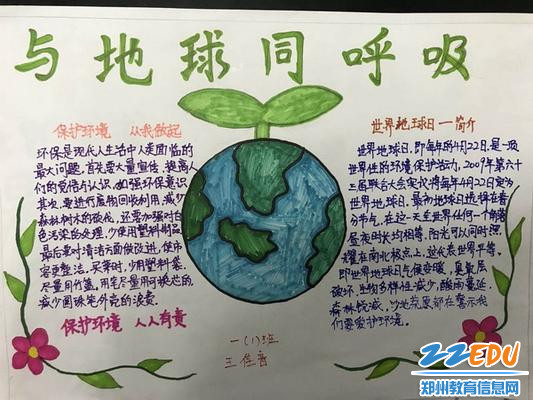 与地球同呼吸
保护环境 从我做起
环保是现代人生活中人类面临的
最大问题,首先要大量宣传,提高人
们的觉悟与认识,加强环保意识
其次,要进行废物回收利用,减少
森林树木的砍伐,还要加强对白
色污染的处理,少使用塑料制品
最后要对清洁方面做改进,使市
容更整洁,买菜时,少用塑料袋,
尽量用竹篮,用笔尽量用可换芯的,
减少圆珠笔外壳的浪费。
保护环境 人人有责
世界地球日一简介
世界地球日,即每年的4月22日,是一项
世界性的环境保护活动,2009年第六十
三届联合大会实决将每年4月22日定为
世界地球日,最初地球日选择在春
分节气,在这一天全世界任何一个角落
昼夜时长均相等,阳光可以同时照
耀在南北极点上,这代表世界平等,
即世界地球日气候变暖,臭氧层
破坏,生物多样性减少,酸雨蔓延
森林锐减,沙地荒原都在警示我
们要爱护环境。
一(1)班
王佳
22EDU
郑州教育信息网